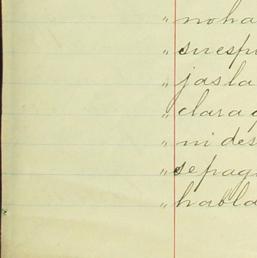 " no ha
" su esp
" jas la
" clara q
" ni des
" se pag
" habla